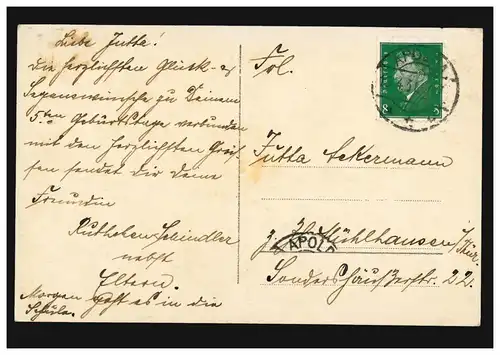 Liebe Jutta!
Die herzlichsten Glück- &
Segenswünsche zu Deinem
5ten Geburtstage verbunden
mit den herzlichsten Grüs-
sen sendet dir Deine
Freundin
Ruthchen Schindler
nebst
Eltern.
Morgen geht es in die
Schule.
Frl.
Jutta Ackermann
z. Zt. Mühlhausen/Thür.
Sondershäuserstr. 22.
8
APOLD
APOLD